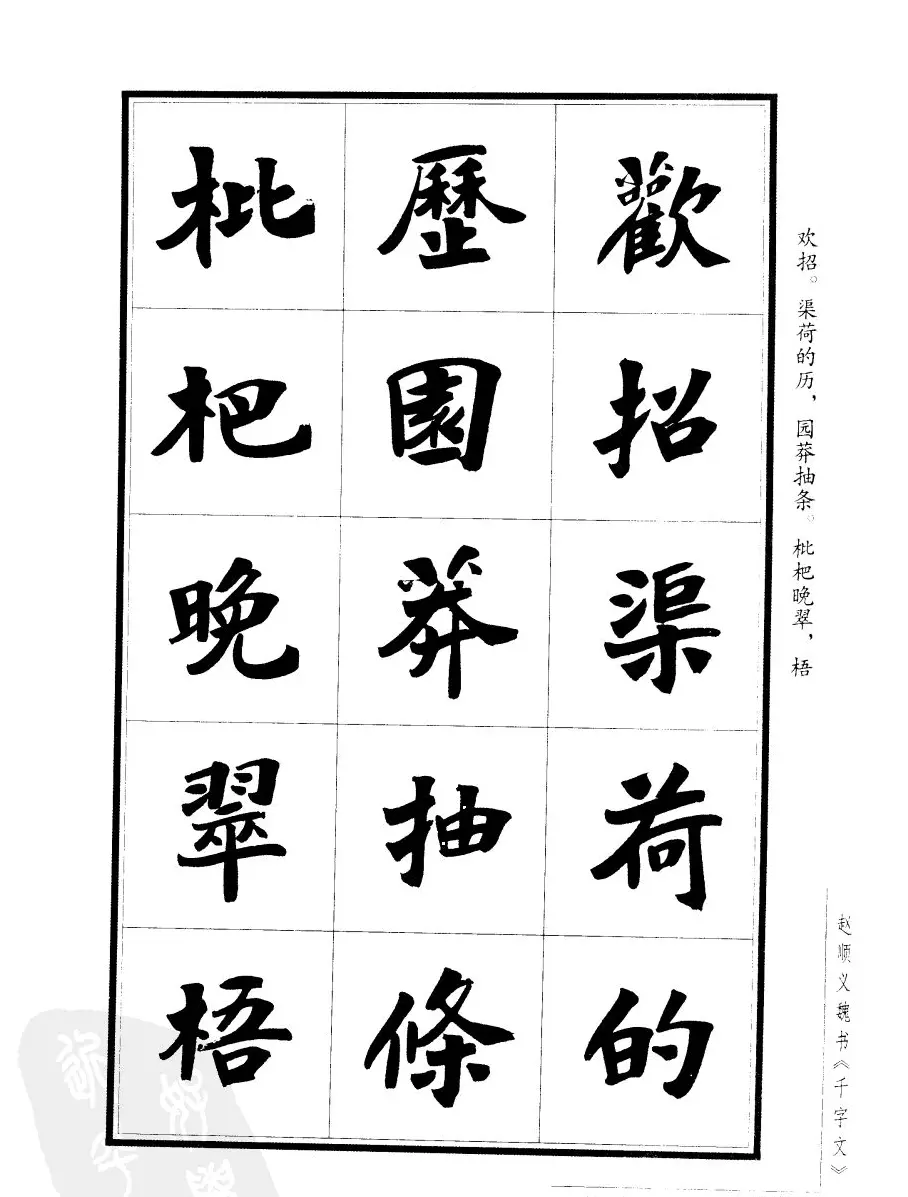 歡招渠荷的
歷園莽抽條
枇杷晚翠梧
欢招。渠荷的历，园莽抽条。枇杷晚翠，梧
赵顺义魏书《千字文》